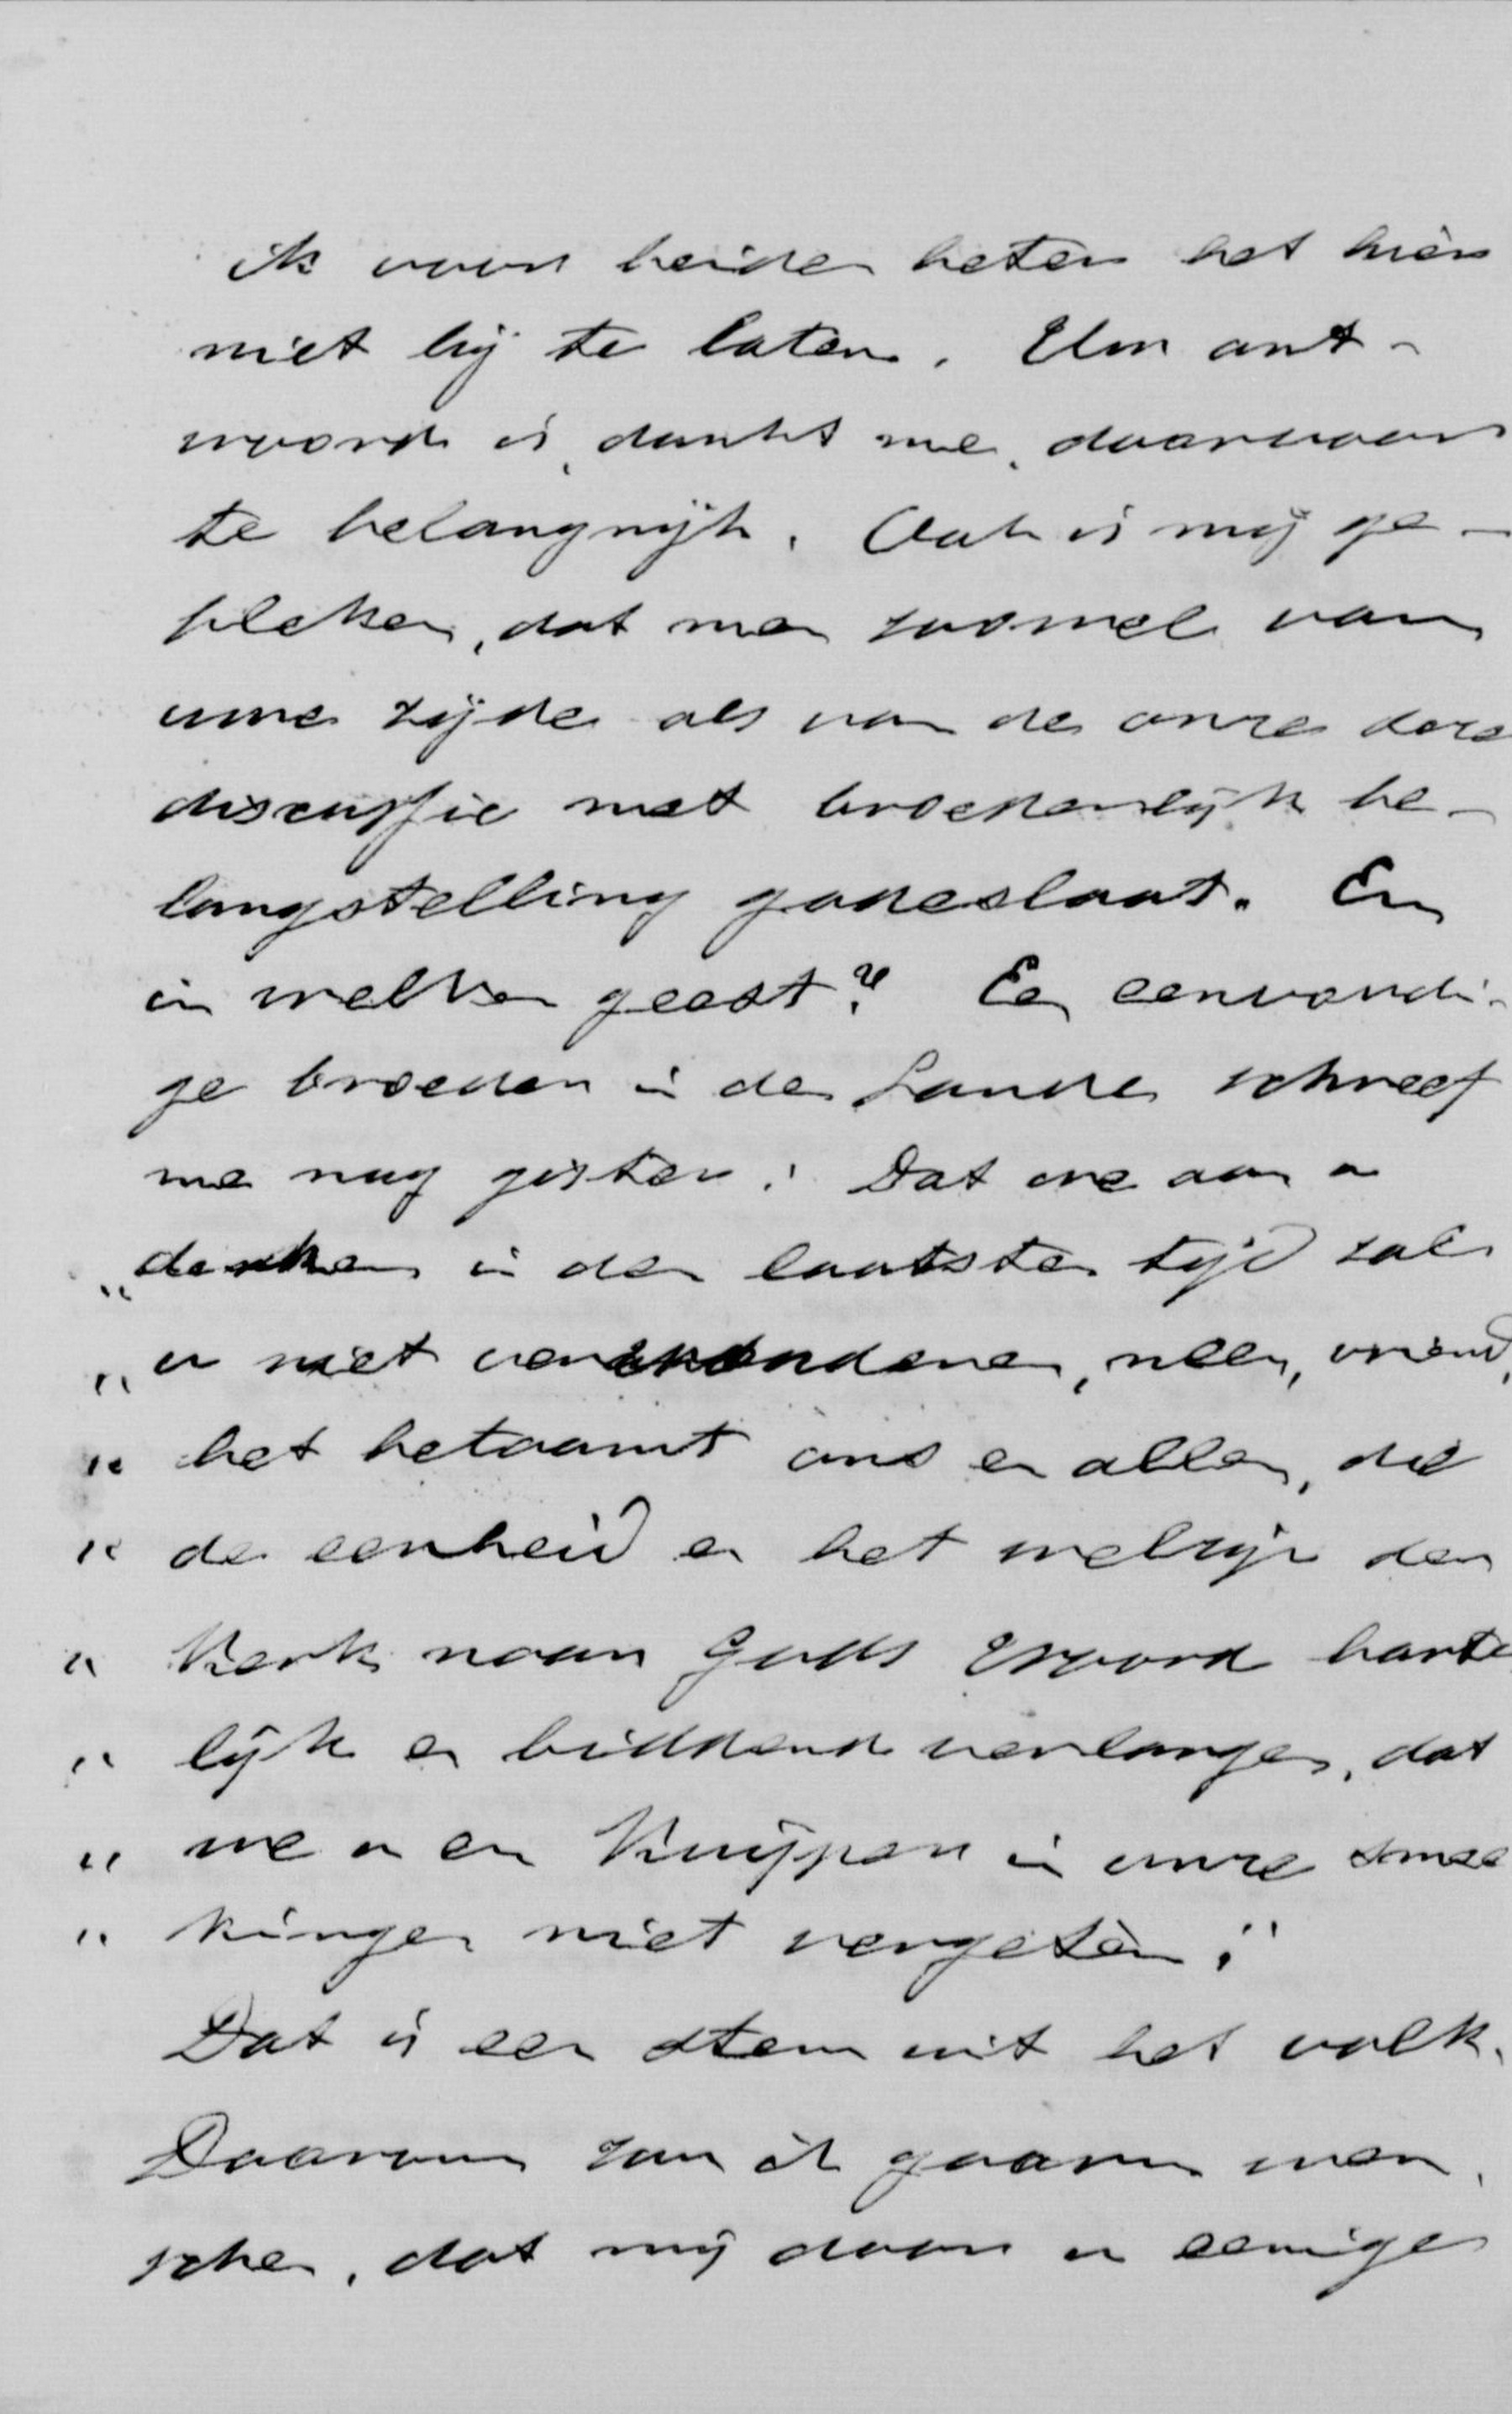 ik voor beiden beter het hier
niet bij te laten. Uw ant-
woord is, dunkt me, daarvoor
te belangrijk. Ook is mij ge-
bleken, dat men zoowel van
uwe zijde als van de onze deze
discussie met broederlijk be-
langstelling gadeslaat. En
in welken geest? Een eenvoudi-
ge broeder in den Lande schreef
me nog gister: Dat we aan u
„denken in den laatsten tijd zal
„u niet verwonderen, neen, vriend,
„ het betaamt ons en allen, die
„ de eenheid en het welzijn der
„ Kerk naar Gods Woord harte
„ lijk en biddend verlangen, dat
„ we u en Kuijper in onze smee
„ kingen niet vergeten."
Dat is een stem uit het volk.
Daarom zou ik gaarne wen-
schen, dat mij door u eenige